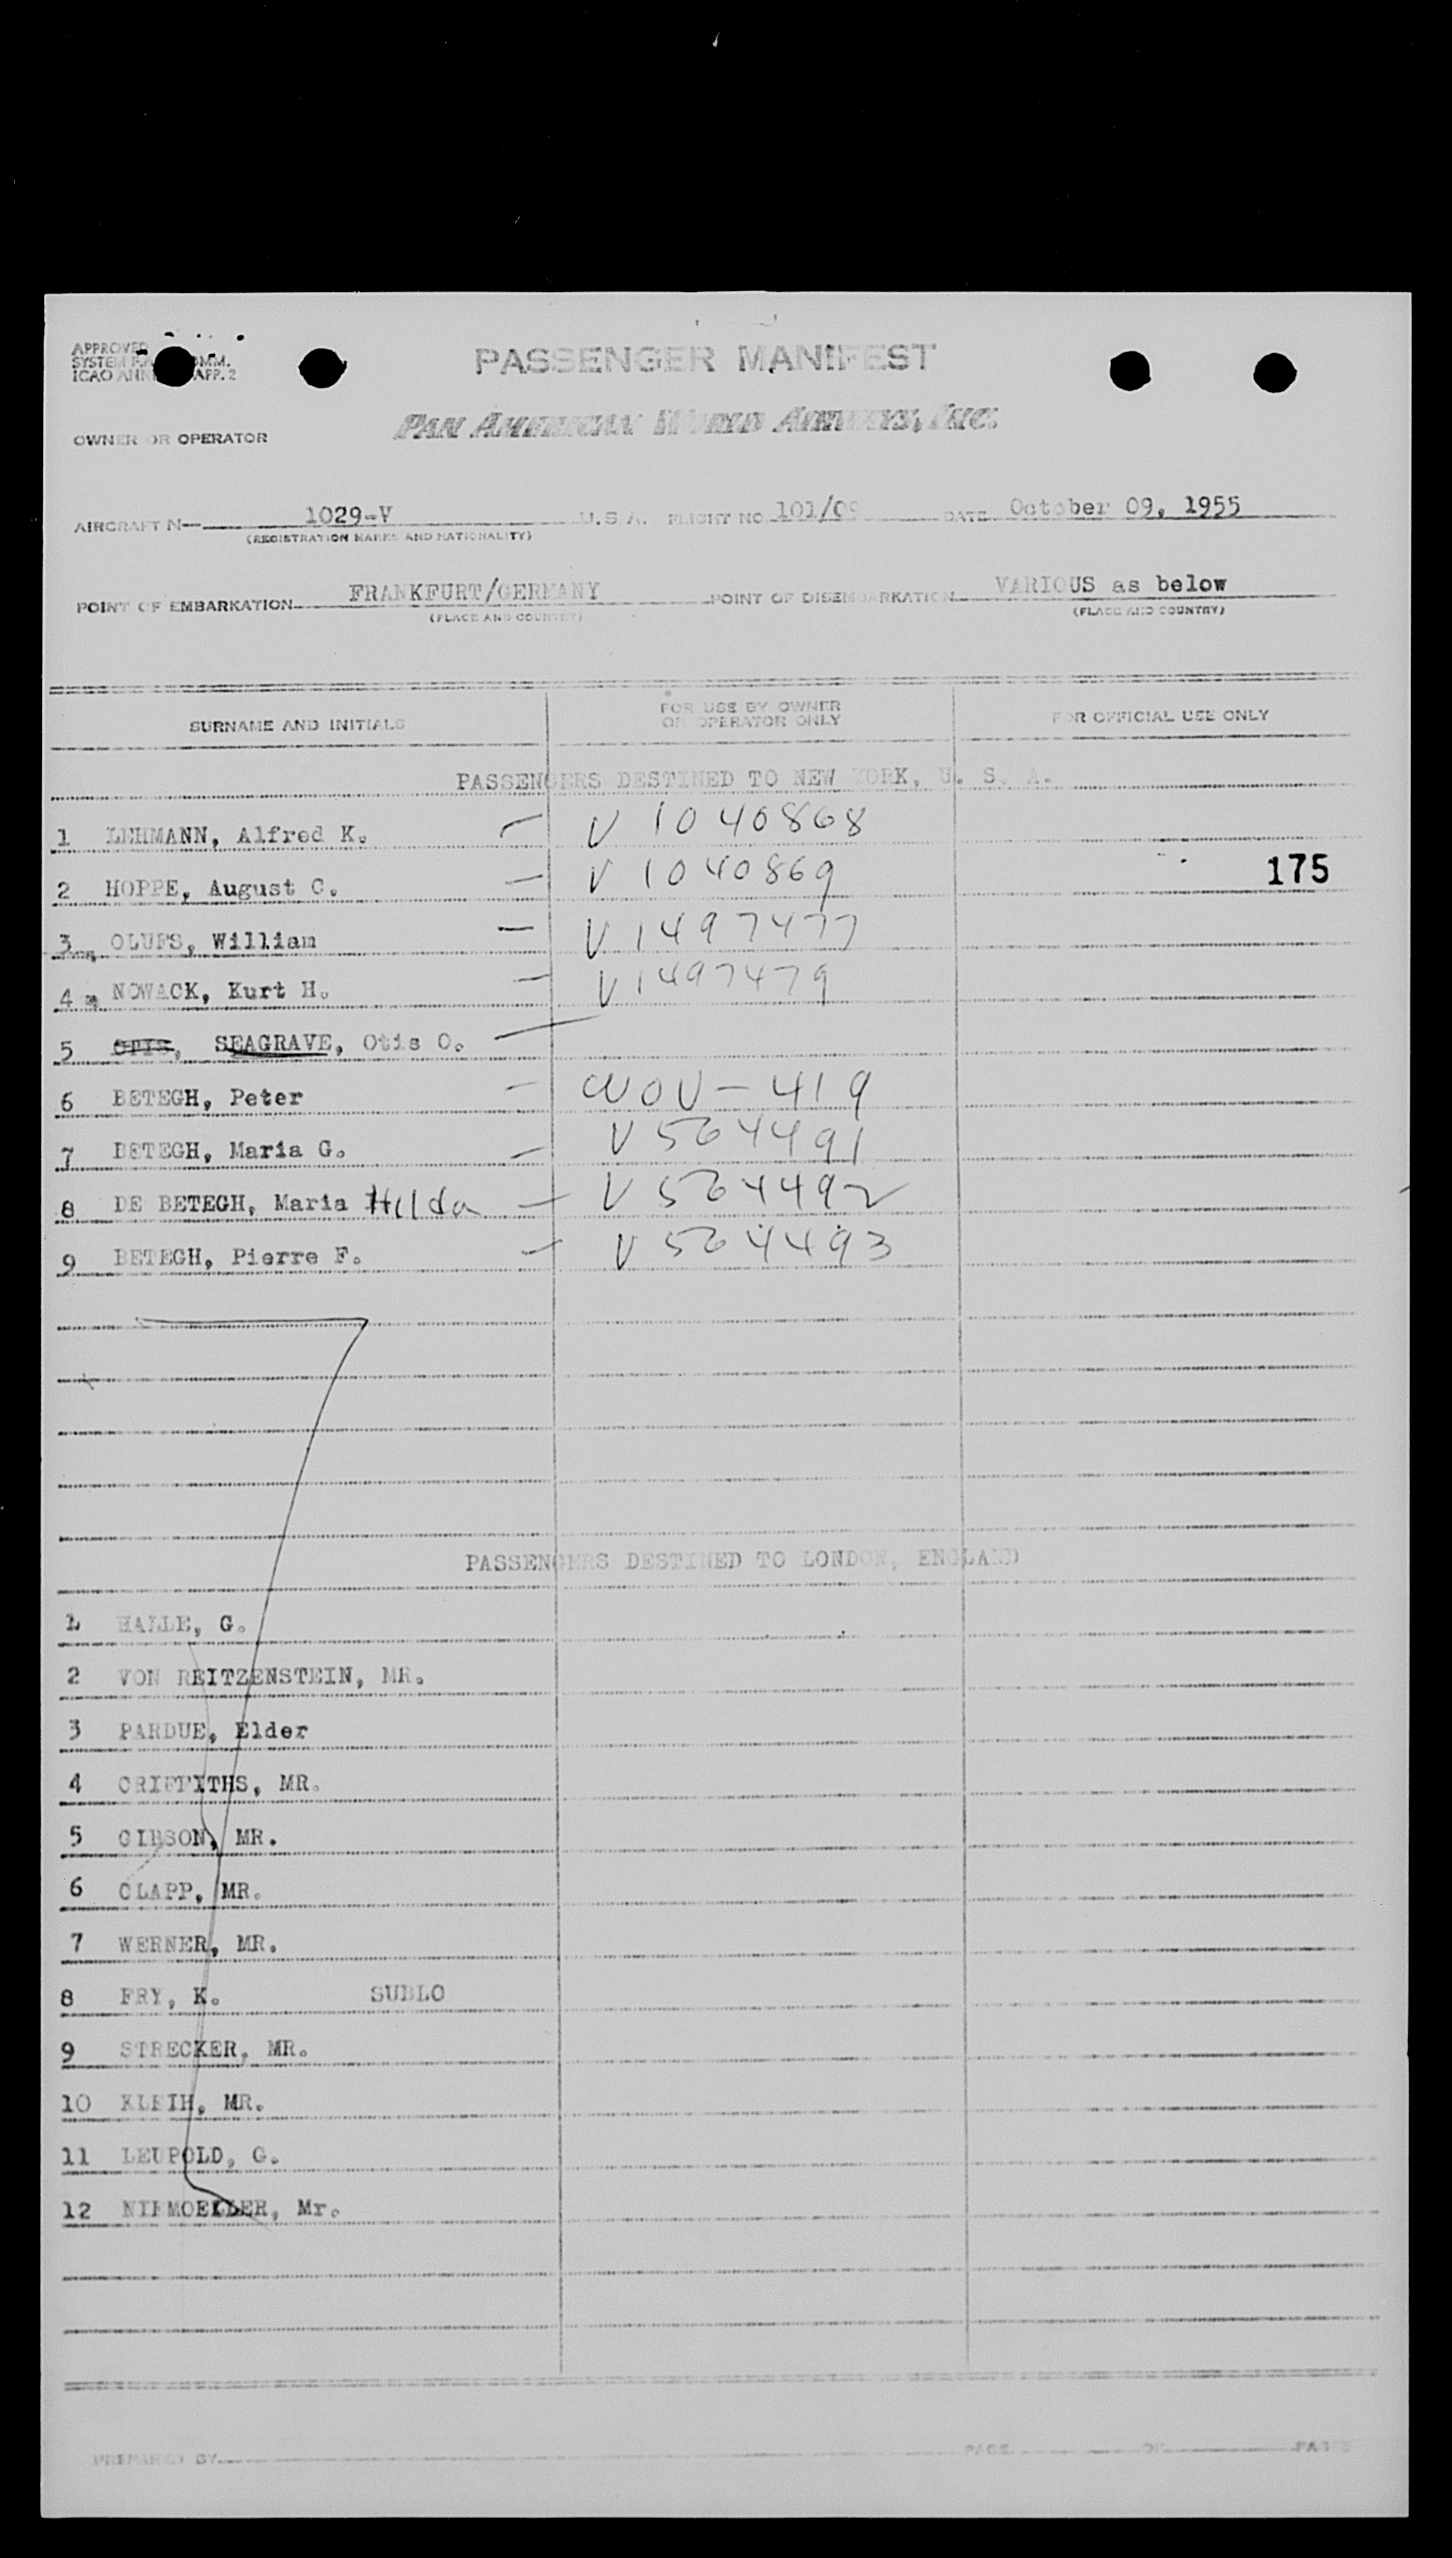 APPROVED
SYSTEM
ICAO APP. 2
PASSENGER MANIFEST
OWNER OR OPERATOR PAN AMERICAN WORLD AIRWAYS, INC.
AIRCRAFT N— 1029-V U.S.A. FLIGHT NO. 101/09 DATE October 09, 1955
(REGISTRATION MARKS AND NATIONALITY)
POINT OF EMBARKATION FRANKFURT/GERMANY POINT OF DISEMBARKATION VARIOUS as below
(PLACE AND COUNTRY) (PLACE AND COUNTRY)
SURNAME AND INITIALS FOR USE BY OWNER OR OPERATOR ONLY FOR OFFICIAL USE ONLY
PASSENGERS DESTINED TO NEW YORK, U. S. A.
1 LEHMANN, Alfred K. — V 1040868
2 HOPPE, August C. — V 1040869 175
3 OLUFS, William — V 1497477
4 NOWACK, Kurt H. — V 1497479
5 OTIS, SEAGRAVE, Otis O. —
6 BETEGH, Peter — 419
7 BETEGH, Maria G. — V 564491
8 DE BETEGH, Maria Hilda — V 564492
9 BETEGH, Pierre F. — V 564493
PASSENGERS DESTINED TO LONDON, ENGLAND
1 HALLE, G.
2 VON REITZENSTEIN, MR.
3 PARDUE, Elder
4 GRIFFITHS, MR.
5 GIBSON, MR.
6 CLAPP, MR.
7 WERNER, MR.
8 FRY, K. SUBLO
9 STRECKER, MR.
10 KLEIH, MR.
11 LEUPOLD, G.
12 NIEMOELLER, Mr.
PREPARED BY PAGE OF PAGES